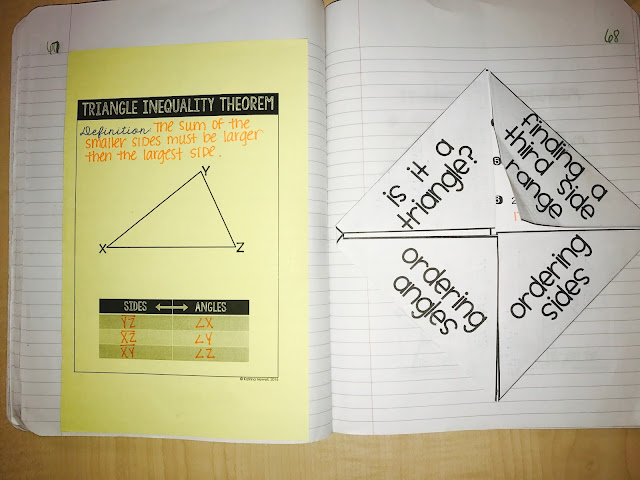 67
TRIANGLE INEQUALITY THEOREM
Definition: The sum of the
smaller sides must be larger
then the largest side.
Y
X
Z
SIDES ↔ ANGLES
YZ ∠X
XZ ∠Y
XY ∠Z
68
is it a
triangle?
finding a
third side
range
ordering
angles
ordering
sides